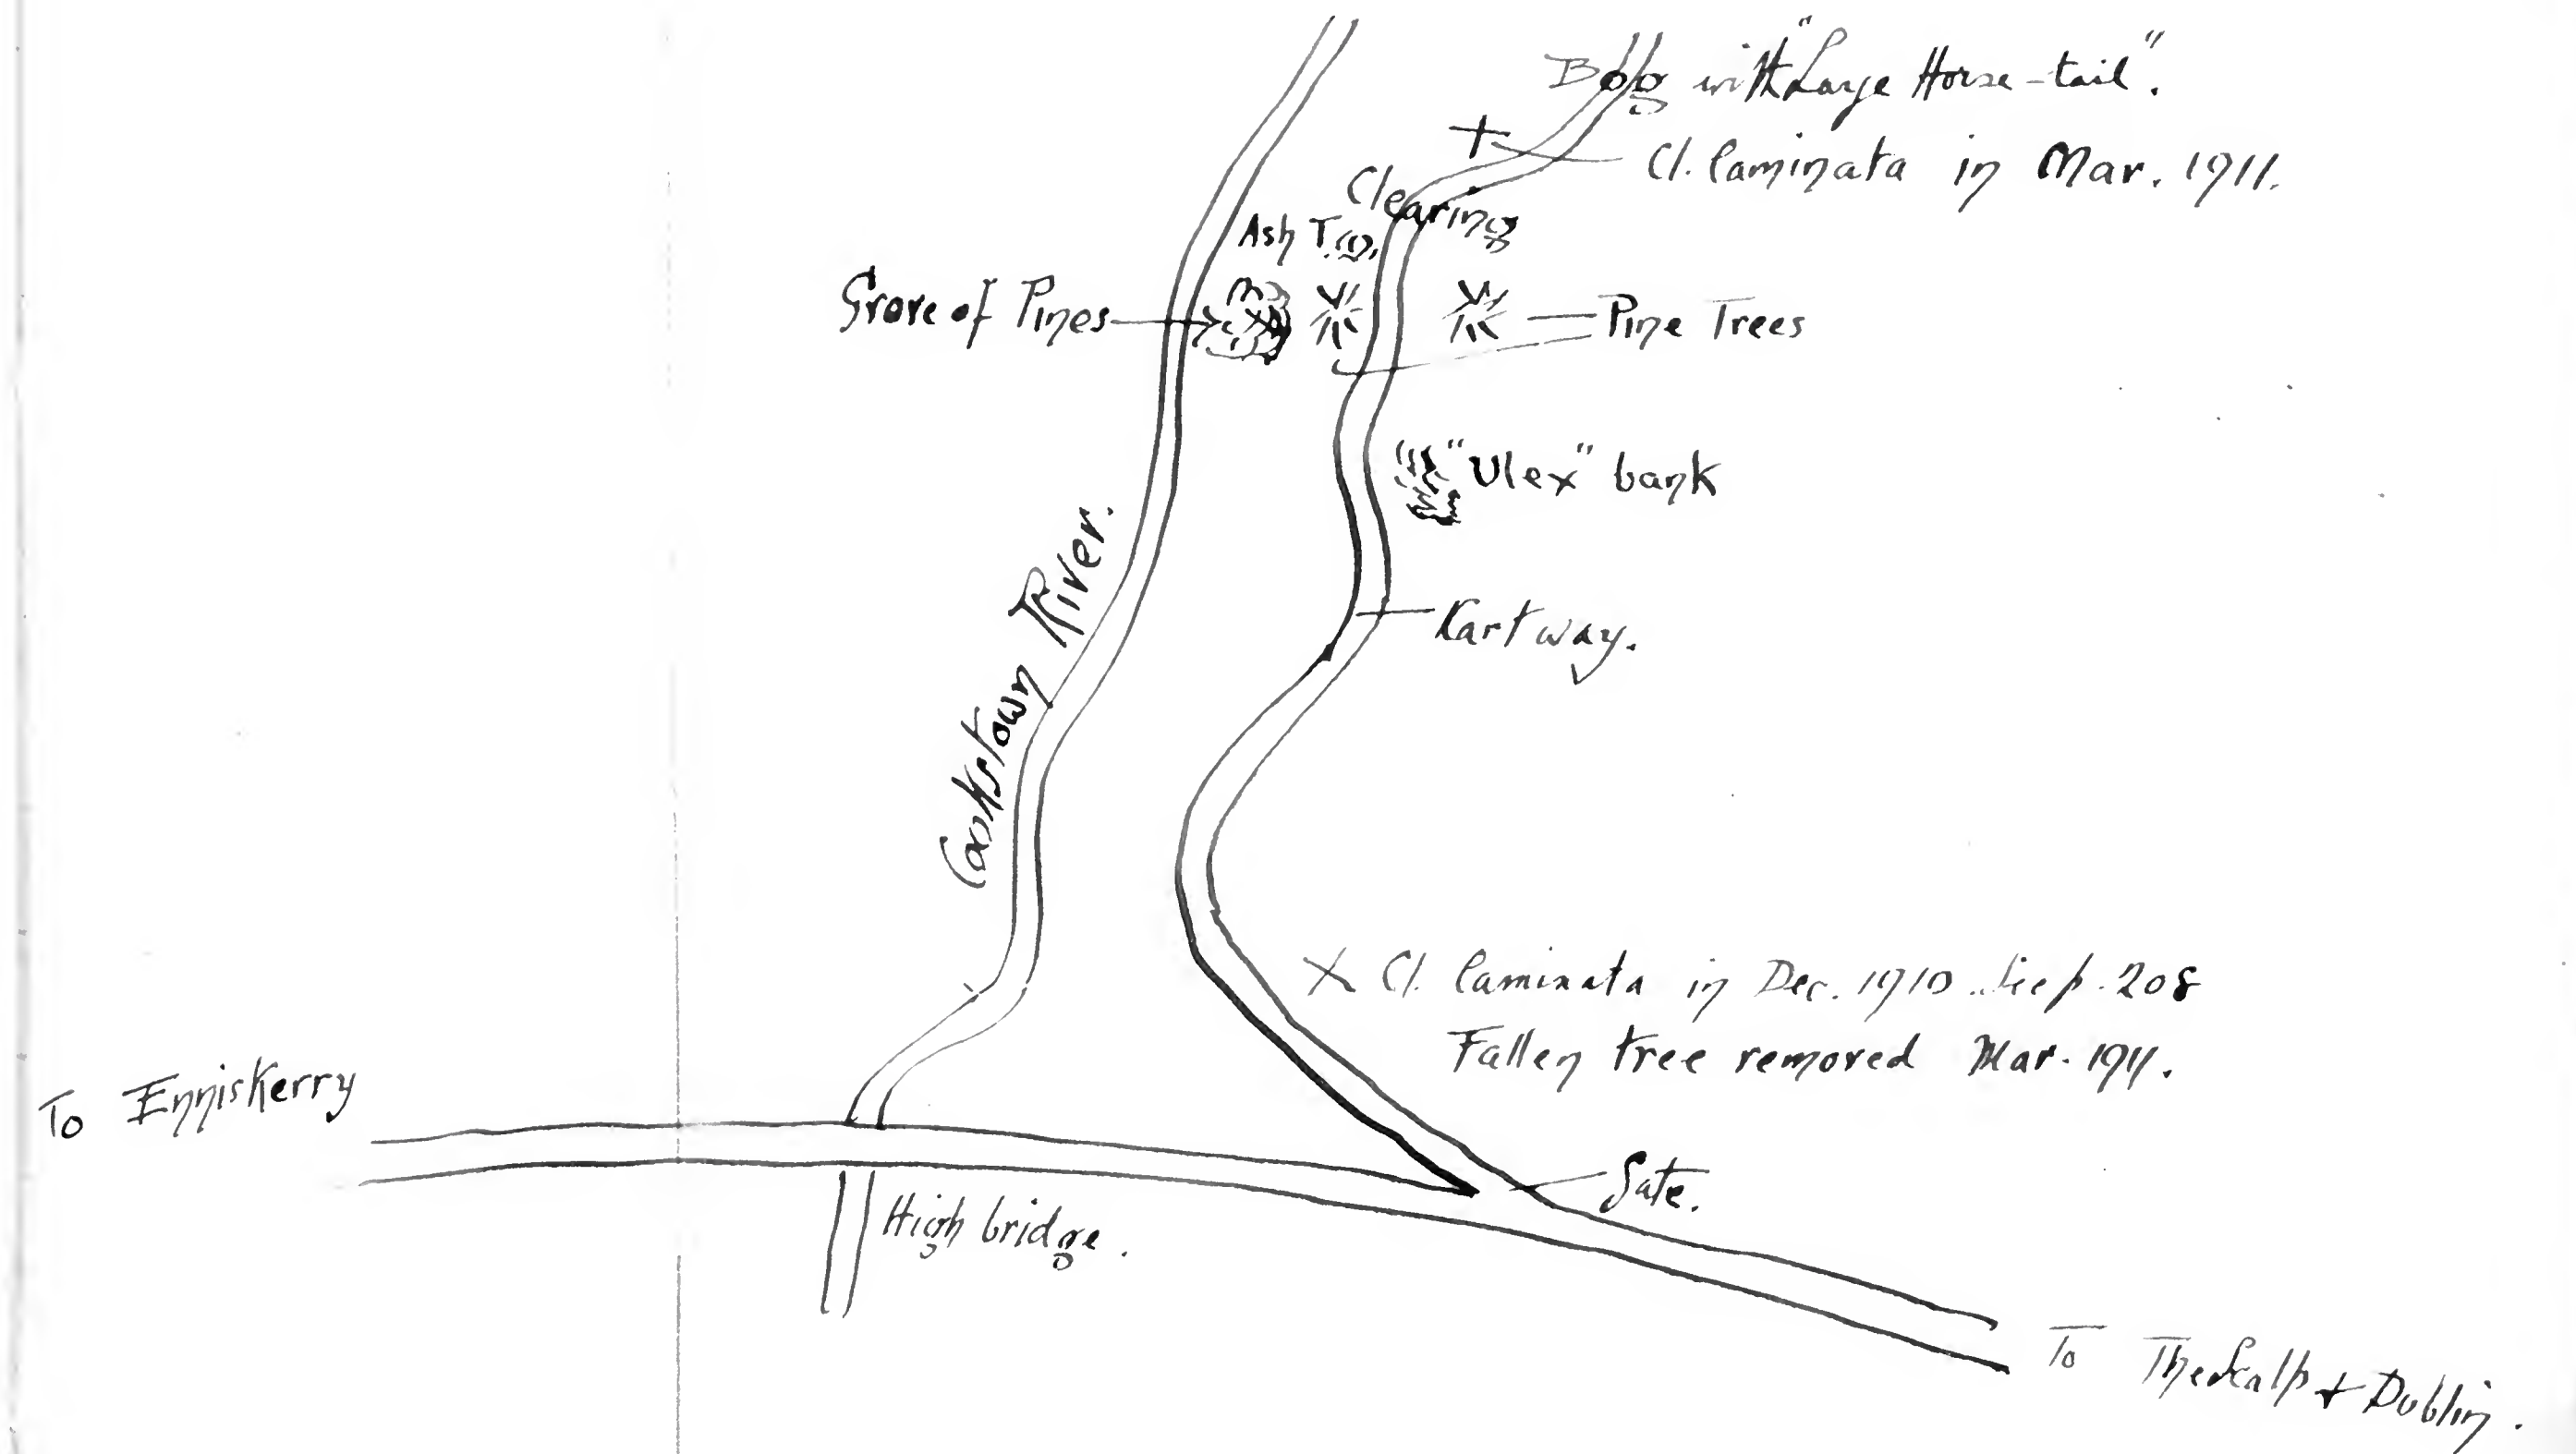 Bog with "Large Horse-tail".
Cl. laminata in Mar. 1911.
Clearing
Ash T.
Grove of Pines
Pine Trees
"Ulex" bank
Kartway.
Cookstown River.
X Cl. laminata in Dec. 1910. See p. 208
Fallen tree removed Mar. 1911.
To Enniskerry
Gate.
High bridge.
To The Scalp & Dublin.